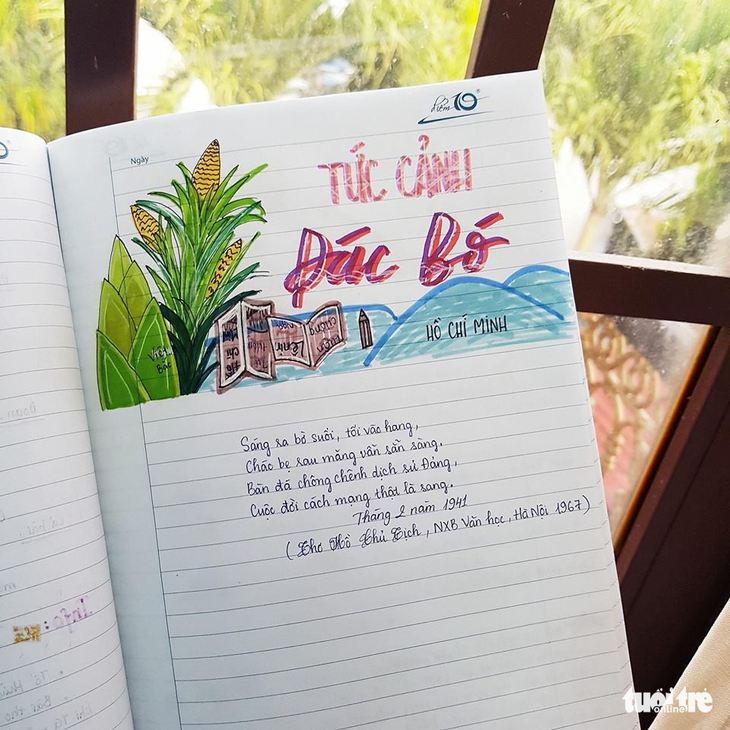 điểm 10
Ngày
TỨC CẢNH
Pác Bó
HỒ CHÍ MINH
Việt Bắc
Lênin
Sáng ra bờ suối, tối vào hang,
Cháo bẹ rau măng vẫn sẵn sàng.
Bàn đá chông chênh dịch sử Đảng,
Cuộc đời cách mạng thật là sang.
Tháng 2 năm 1941
(Thơ Hồ Chủ Tịch, NXB Văn học, Hà Nội 1967)
tuổi trẻ
online